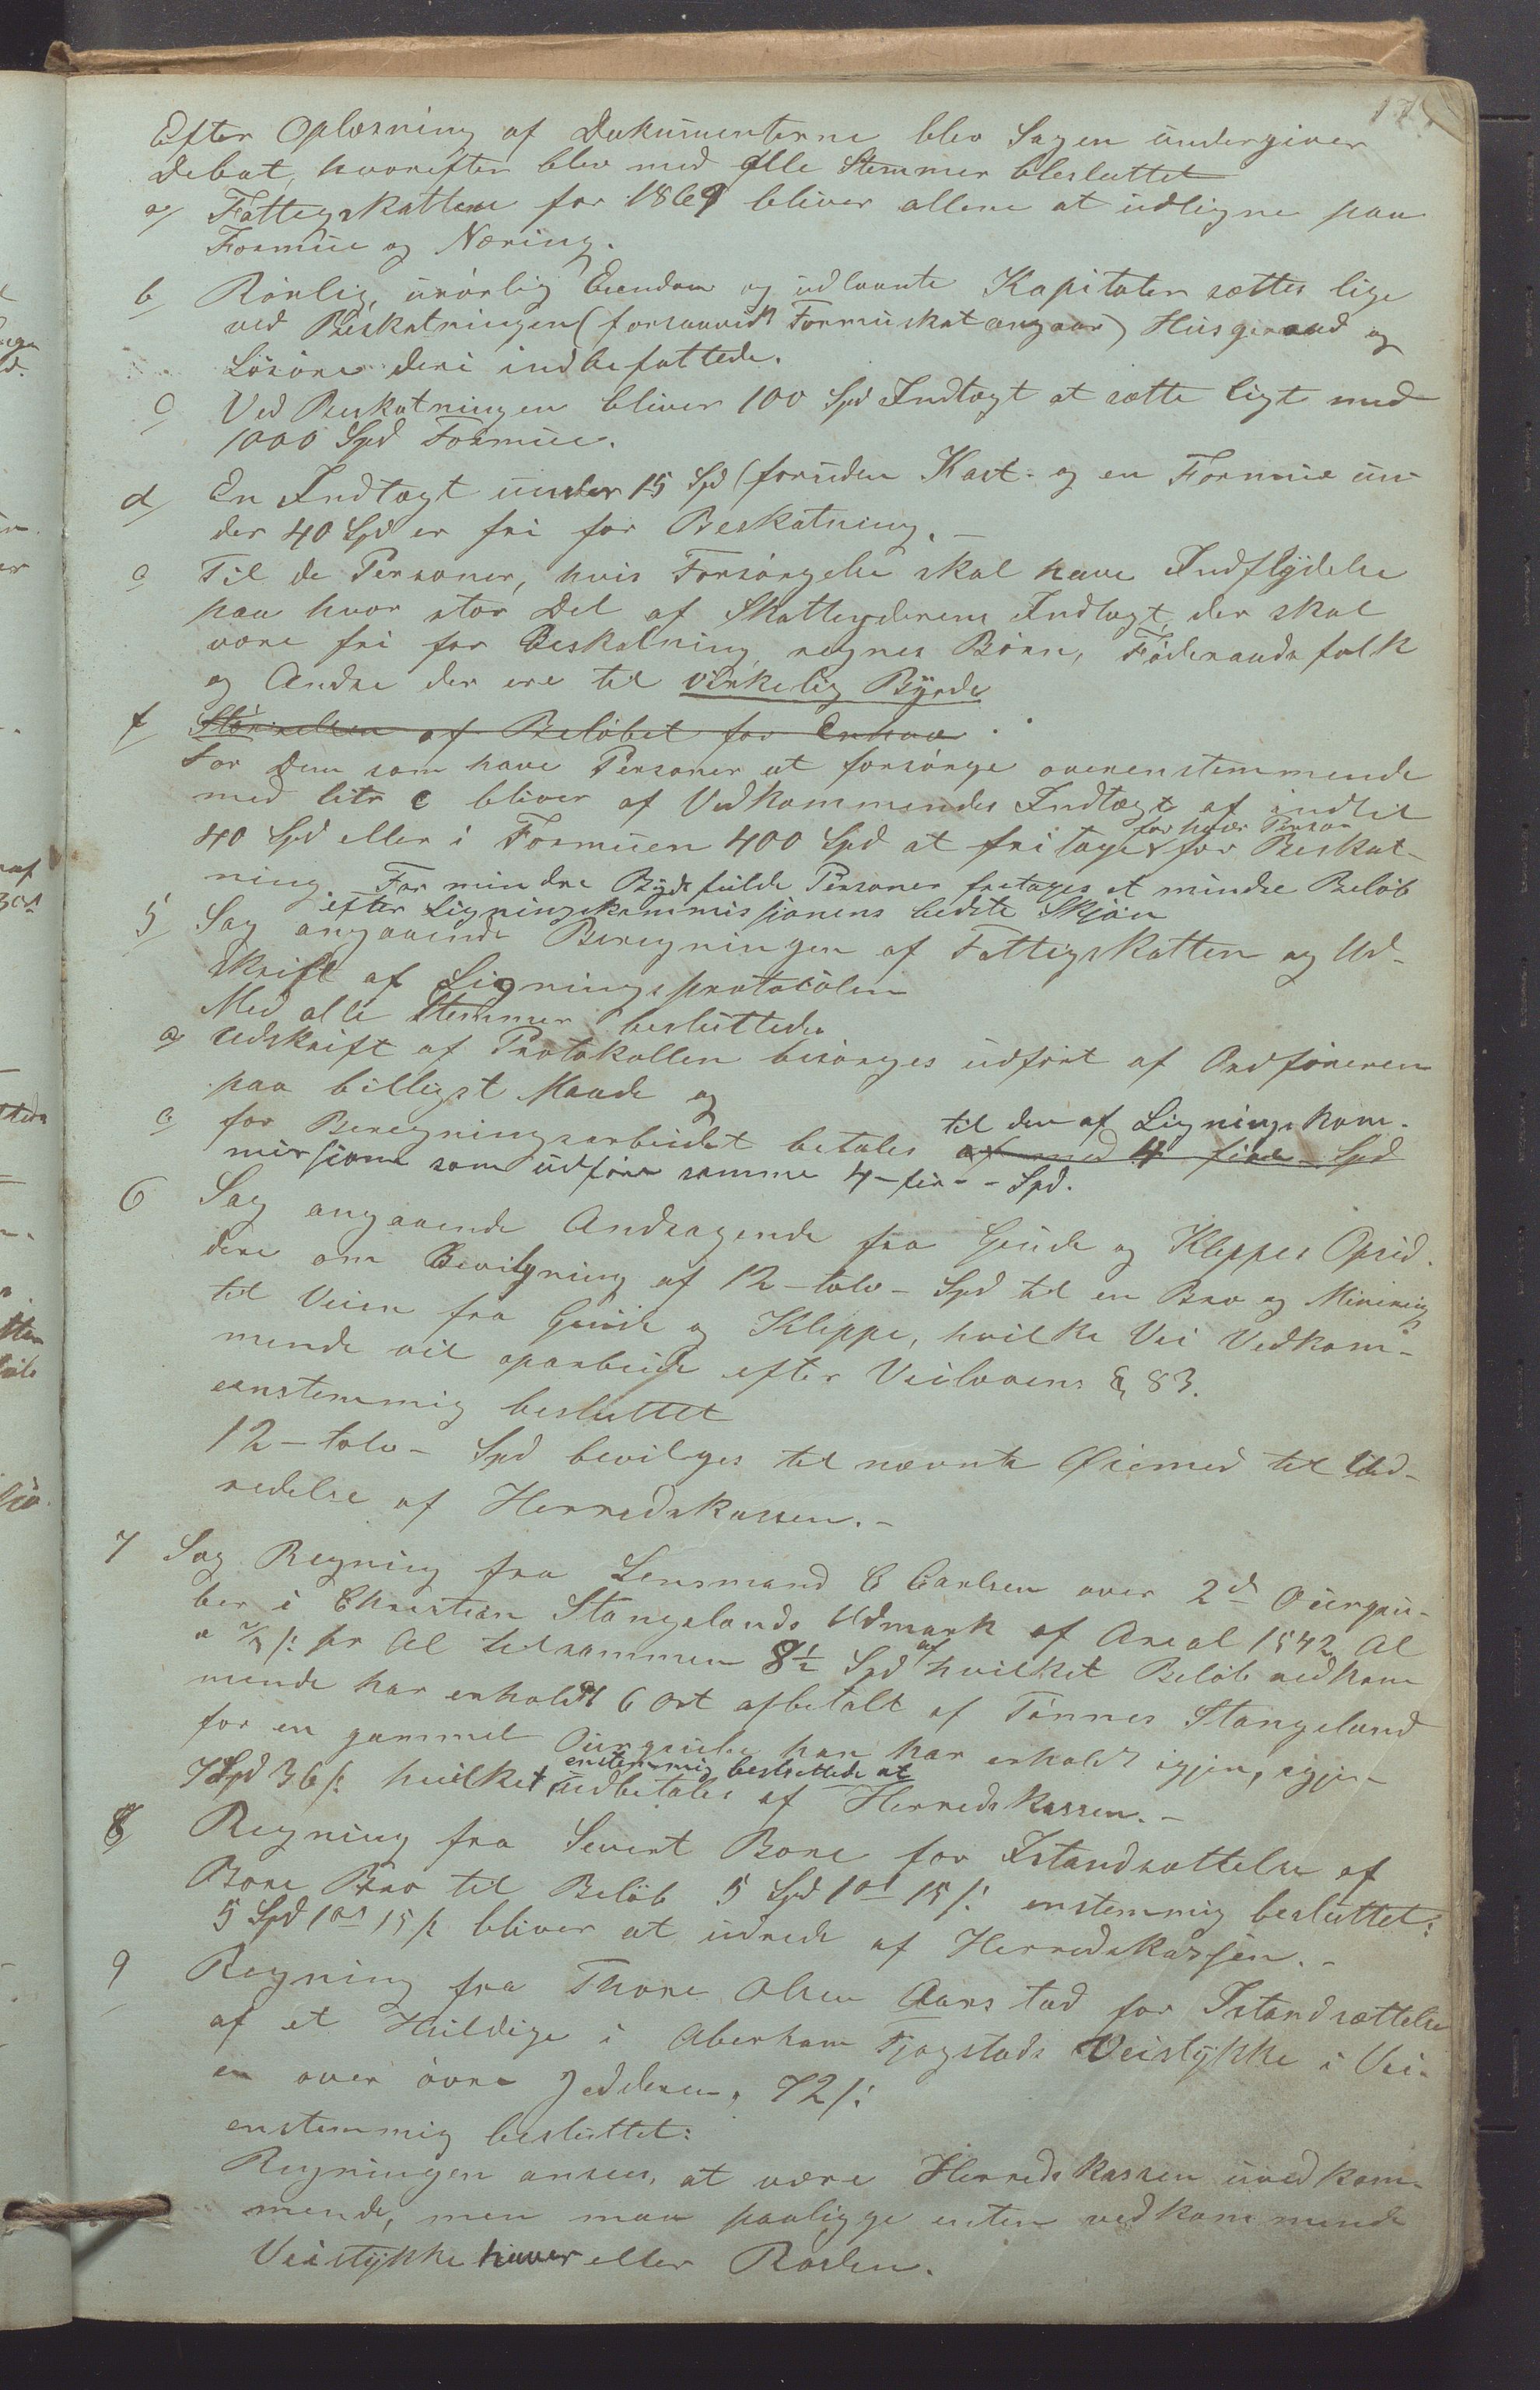 Efter Oplæsning af Dokumenterne blev Sagen undergiven
Debat, hvorefter blev med alle Stemmer blesluttet
a/ Fattigskatten for 1869 bliver allene at udligne paa
Formue og Næring.
b/ Rørlig, urørlig Eiendom og udlaante Kapitaler sættes lige
ved Beskatningen (forsaavidt Formuskat angaar) Husgeraad og
Løsøre deri indbefattede.
c/ Ved Beskatningen bliver 100 Spd Indtægt at sætte ligt med
1000 Spd Formue.
d/ En Indtægt under 15 Spd (foruden Kost- og en Formue un-
der 40 Spd er fri for Beskatning. –
e Til de Personer, hvis Forsørgelse skal have Indflydelse
paa hvor stor Del af Skatteyderens Indtægt der skal
være fri for Beskatning regnes Børn, Føderaadsfolk
og Andre der ere til virkelig Byrde
f/ Størrelsen af Beløbet for Enhver
For Dem som have Personer at forsørge overenstemmende
med litr e bliver af Vedkommendes Indtægt af indtil
40 Spd eller i Formuen 400 Spd at fritages for hver Person for Beskat-
ning. For mindre Byrdefulde Personer fritages et mindre Beløb
efter Ligningskommissjonens bedste Skjøn
5/ Sag angaaende Beregningen af Fattigskatten og Ud-
skrift af Ligningsprotocolen
Med alle Stemmer besluttedes
a/ Udskrift af Protokollen besørges udført af Ordføreren
paa billigst Maade og
for Beregningsarbeidet betales til den af Ligningskom-
af med 4 fire Spd
missjonen som udfører samme 4 – fire – Spd.
6 Sag angaaende Andragende fra Grude og Kleppes Opsid-
dere om Bevilgning af 12 – tolv – Spd til en Bro og Minering
til Veien fra Grude og Kleppe, hvilke Vei Vedkom-
mende vil oparbeide efter Veilovens § 83.
eenstemmig besluttet
12 – tolv – Spd bevilges til nævnte Øiemed til Ud-
redelse af Herredskassen. –
7 Sag Regning fra Lensmand C Carlsen over 2de Øurgru-
ber i Christian Stangelands Udmark af Areal 1542 Al
a 2/3 /: pr Al tilsammen 8½ Spd af hvilket Beløb vedkom
mende har erholdt 6 Ort afbetalt af Tønnes Stangeland
for en gammel Øurgrube han har erholdt igjen, igjen
7 Spd 36 /: hvilket enstemmig besluttede at udbetales af Herredskassen. –
8/ Regning fra Sivert Bore for Istandsættelse af
Bore Bro til Beløb 5 Spd 1 ort 15 /: enstemmig besluttet:
5 Spd 1 ort 15 /: bliver at udrede af Herredskassen. –
9 Regning fra Thore Olsen Aarstad for Istandsættelse
af et Huldige i Aberham Tjøgstads Veistykke i Vei-
en over øvre Jedderen, 72 /:
enstemmig besluttet:
Regningen ansees, at være Herredskassen uvedkom-
mende, men maa paaligge enten vedkommende
Veistykke haver eller Roden.